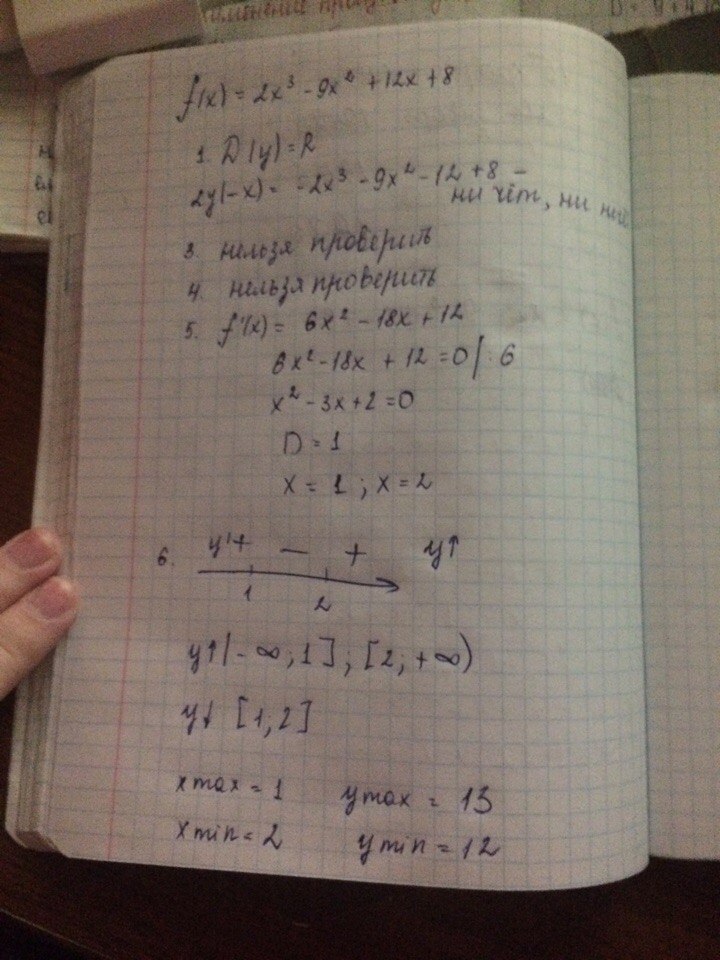 f(x) = 2x³ - 9x² + 12x + 8
1. D(y) = R
2y(-x) = -2x³ - 9x² - 12 + 8 -
ни чёт, ни
3. нельзя проверить
4. нельзя проверить
5. f'(x) = 6x² - 18x + 12
6x² - 18x + 12 = 0 | : 6
x² - 3x + 2 = 0
D = 1
x = 1 ; x = 2
6. y' + — + y↑
1 2
y↑ (-∞; 1] ; [2; +∞)
y↓ [1, 2]
xmax = 1 ymax = 13
xmin = 2 ymin = 12